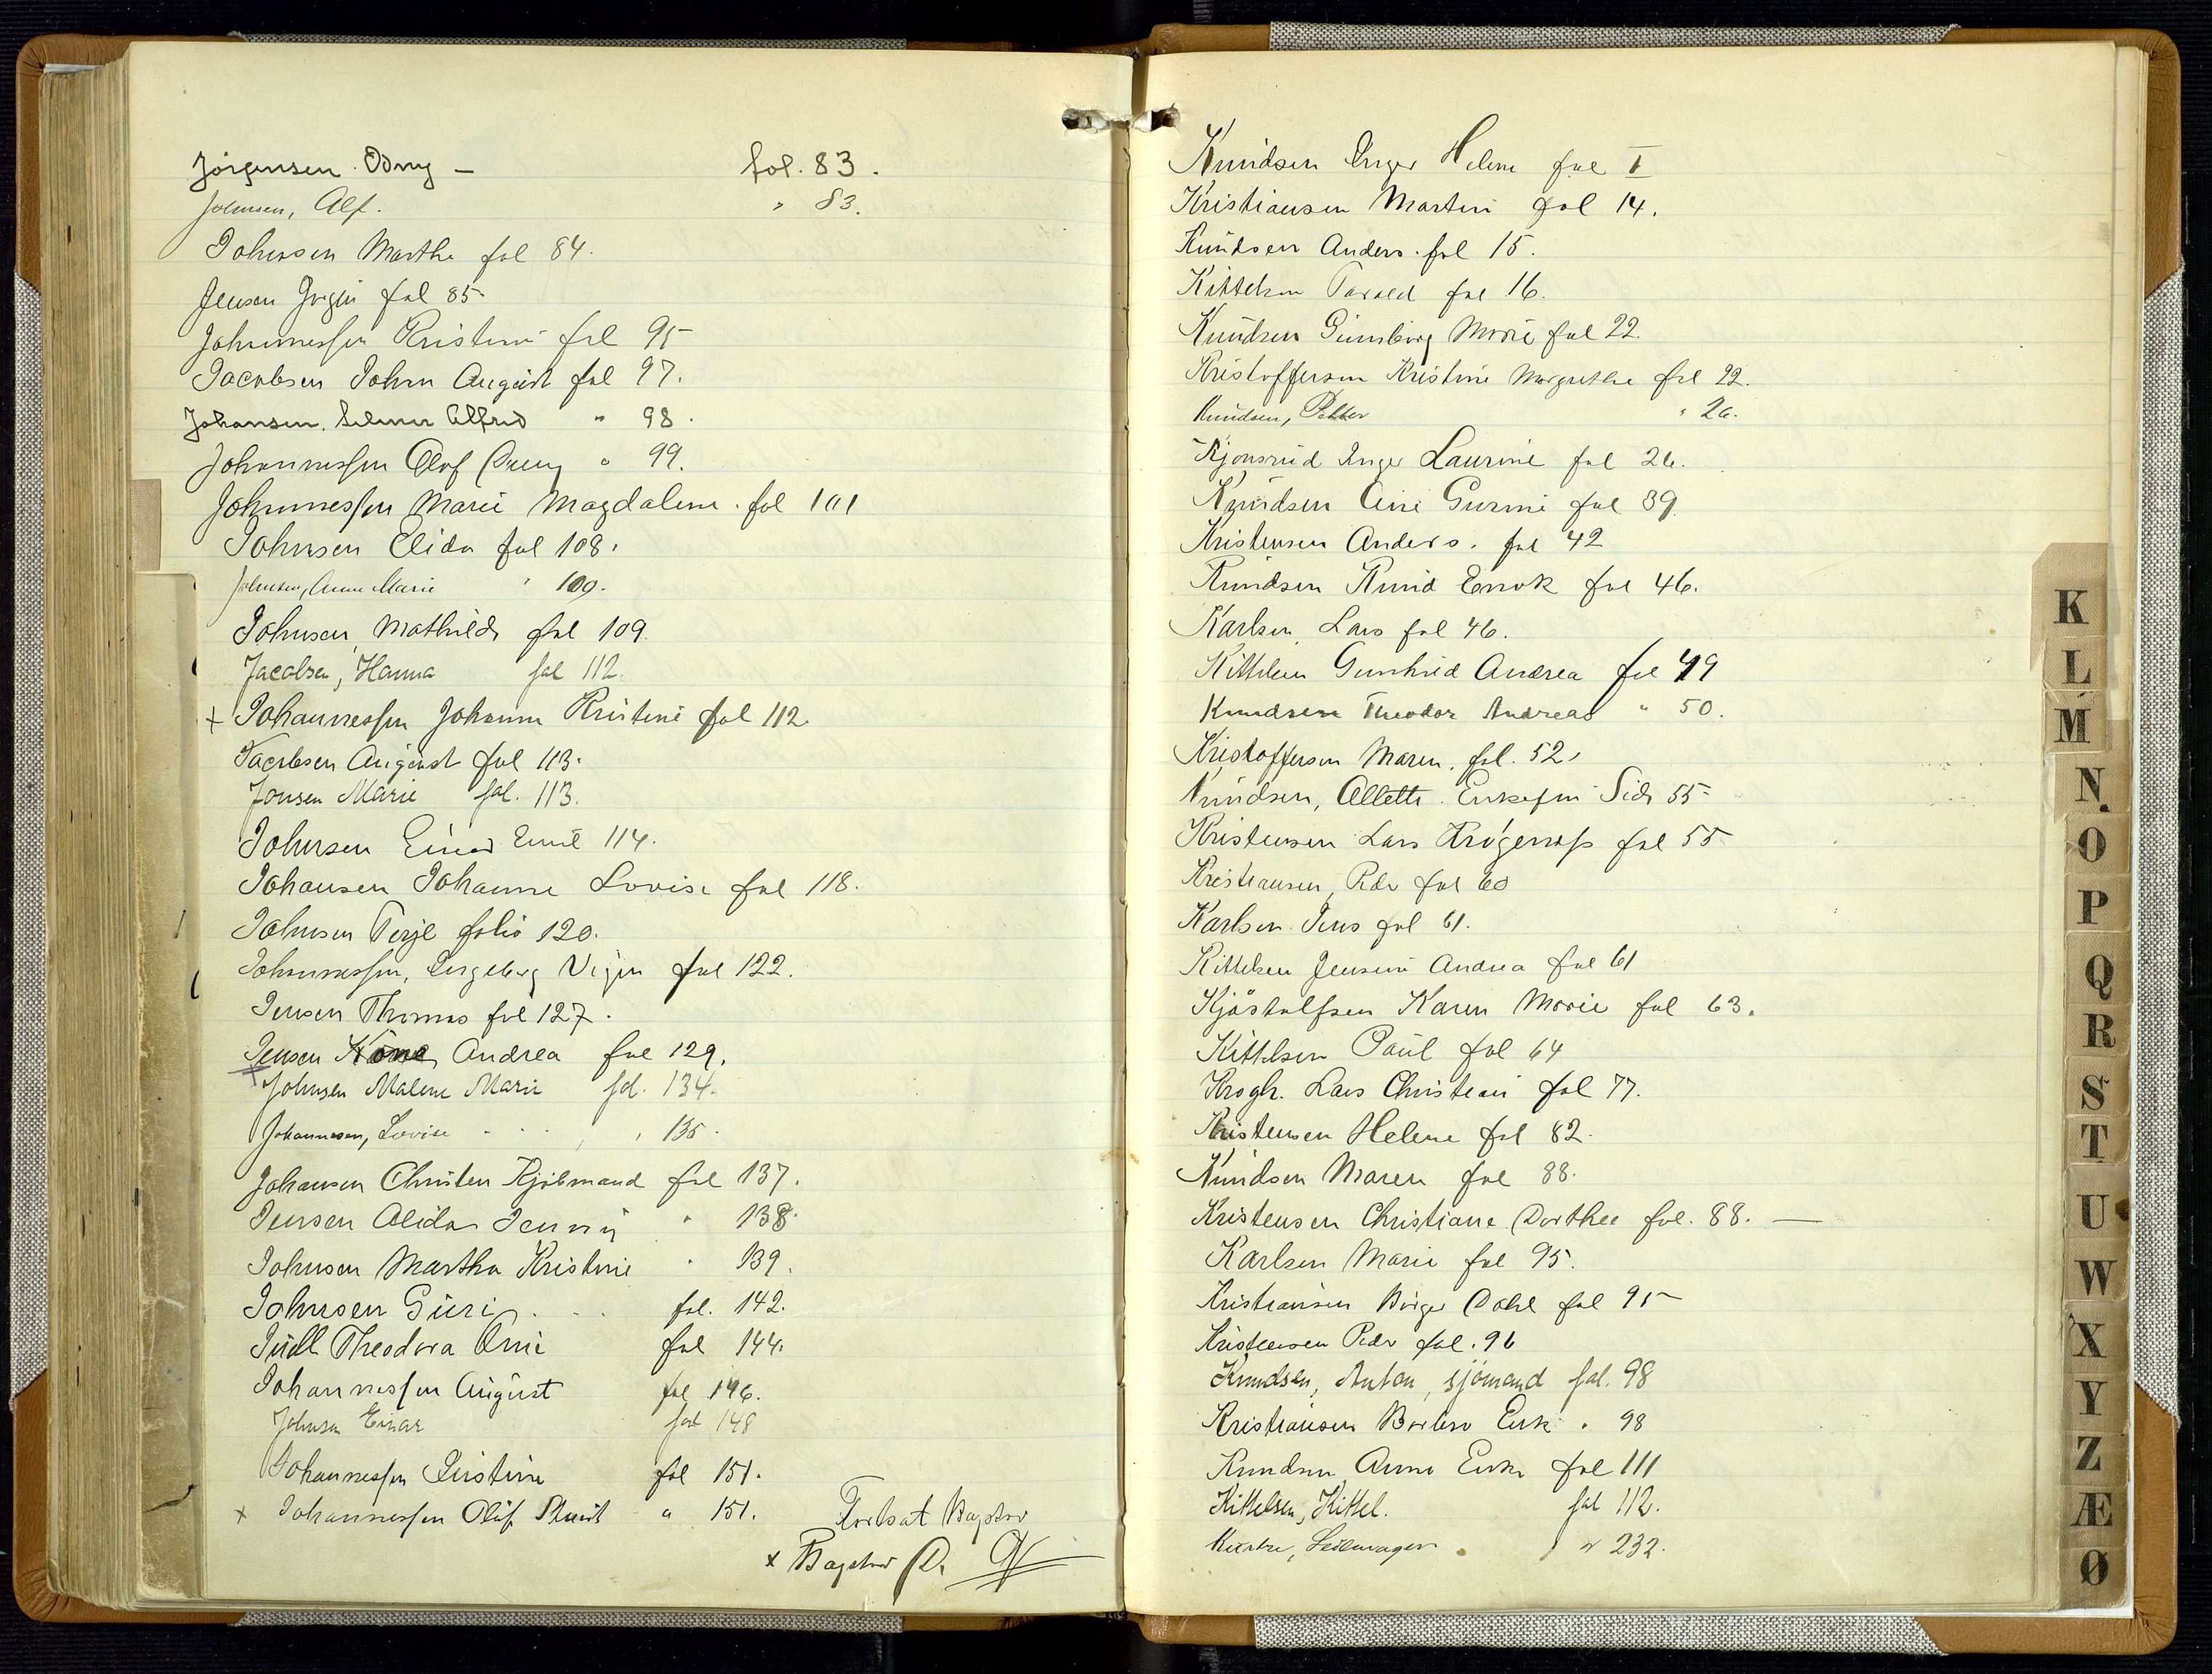 Jörgensen Odny – fol. 83.
Johnsen, Alf. " 83.
Johnsen Marthe fol 84.
Jensen fol 85
Johannessen Kristine fol 95
Jacobsen Johan August fol 97.
Johansen, Selmer Alfred " 98.
Johannessen Olaf " 99.
Johannessen Marie Magdalene fol 101
Johnsen Elida fol 108.
Johnsen, Anne Marie " 109.
Johnsen, Mathilde fol 109.
Jacobsen, Hanna fol 112.
+ Johannessen Johanne Kristine fol 112.
Jacobsen August fol 113.
Jonsen Marie fol. 113.
Johnsen Einar Emil 114.
Johansen Johanne Lovise fol 118.
Johnsen Terje folio 120.
Johannessen, Ingeborg fol 122.
Jensen Thomas fol 127.
Jensen Andrea fol 129.
Johnsen Malene Marie fol. 134.
Johannesen, Lovise " 135.
Johansen Christen Kjöbmand fol 137.
Jensen Alida Jenny " 138.
Johnsen Martha Kristine " 139.
Johnsen Guri fol. 142.
Juell Theodora fol 144.
Johannessen August fol 146.
Johnsen Einar fol 148
Johannessen fol 151.
x Johannessen Olaf " 151.
Fortsat Bagstov
x
Knudsen Inger Helene fol I
Kristiansen Martin fol 14.
Knudsen Anders fol 15.
Kittelsen Tarald fol 16.
Knudsen Marie fol 22.
Kristofferson Kristine Margrethe fol 22.
Knudsen, Petter " 26.
Kjonsrud Inger Laurine fol 26.
Knudsen Gurine fol 39
Kristensen Anders. fol 42
Knudsen Knud Enok fol 46.
Karlsen, Lars fol 46.
Kittelsen Gunhild Andrea fol 49
Knudsen Theodor Andreas " 50.
Kristoffersen Maren, fol. 52.
Knudsen, Allette. Side 55
Kristensen Lars fol 55
Kristiansen, Peder fol 60
Karlsen Jens fol 61.
Kittelsen Jensine Andrea fol 61
Kjöstolfsen Karen Marie fol 63.
Kittelsen Paul fol 64
Krogh. Lars Christian fol 77.
Kristensen Helene fol 82.
Knudsen Maren fol 88.
Kristensen Christiane Dorthea fol. 88. —
Karlsen Marie fol 95.
Kristiansen Birger Dahl fol 95
Kristensen Peder fol. 96
Knudsen, Anton, sjömand fol. 98
Kristiansen Barbro Enk. " 98
Knudsen Anne Enke fol 111
Kittelsen, Kittel. fol 112.
" 232.
K
L
M
N
O
P
Q
R
S
T
U
W
X
Y
Z
Æ
Ø